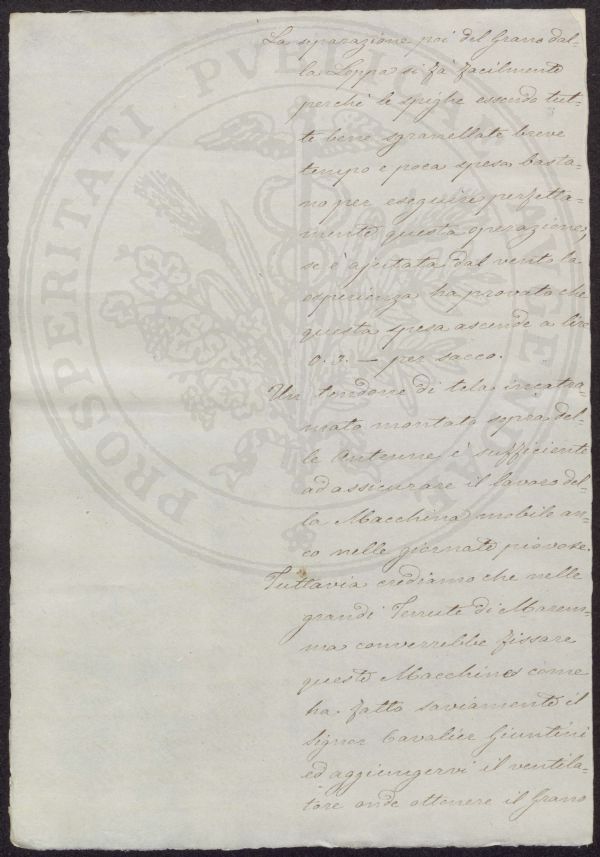 La separazione poi del Grano dal-
la Loppa si fà facilmente
perché le spighe essendo tut-
te bene sgranellate breve
tempo e poca spesa basta-
no per eseguire perfetta-
mente questa operazione,
se è ajutata dal vento la
esperienza ha provato che
questa spesa ascende a lire
0. 3. — per sacco.
Un tendone di tela incatra-
mato montato sopra del-
le Antenne è sufficiente
ad assicurare il lavoro del-
la Macchina mobile an-
co nelle giornate piovose.
Tuttavia crediamo che nelle
grandi Tenute di Marem-
ma converrebbe fissare
queste Macchine come
ha fatto saviamente il
Signor Cavalier Giuntini
ed aggiungervi il ventila-
tore onde ottenere il Grano
PROSPERITATI PVBLICAE AVGENDAE